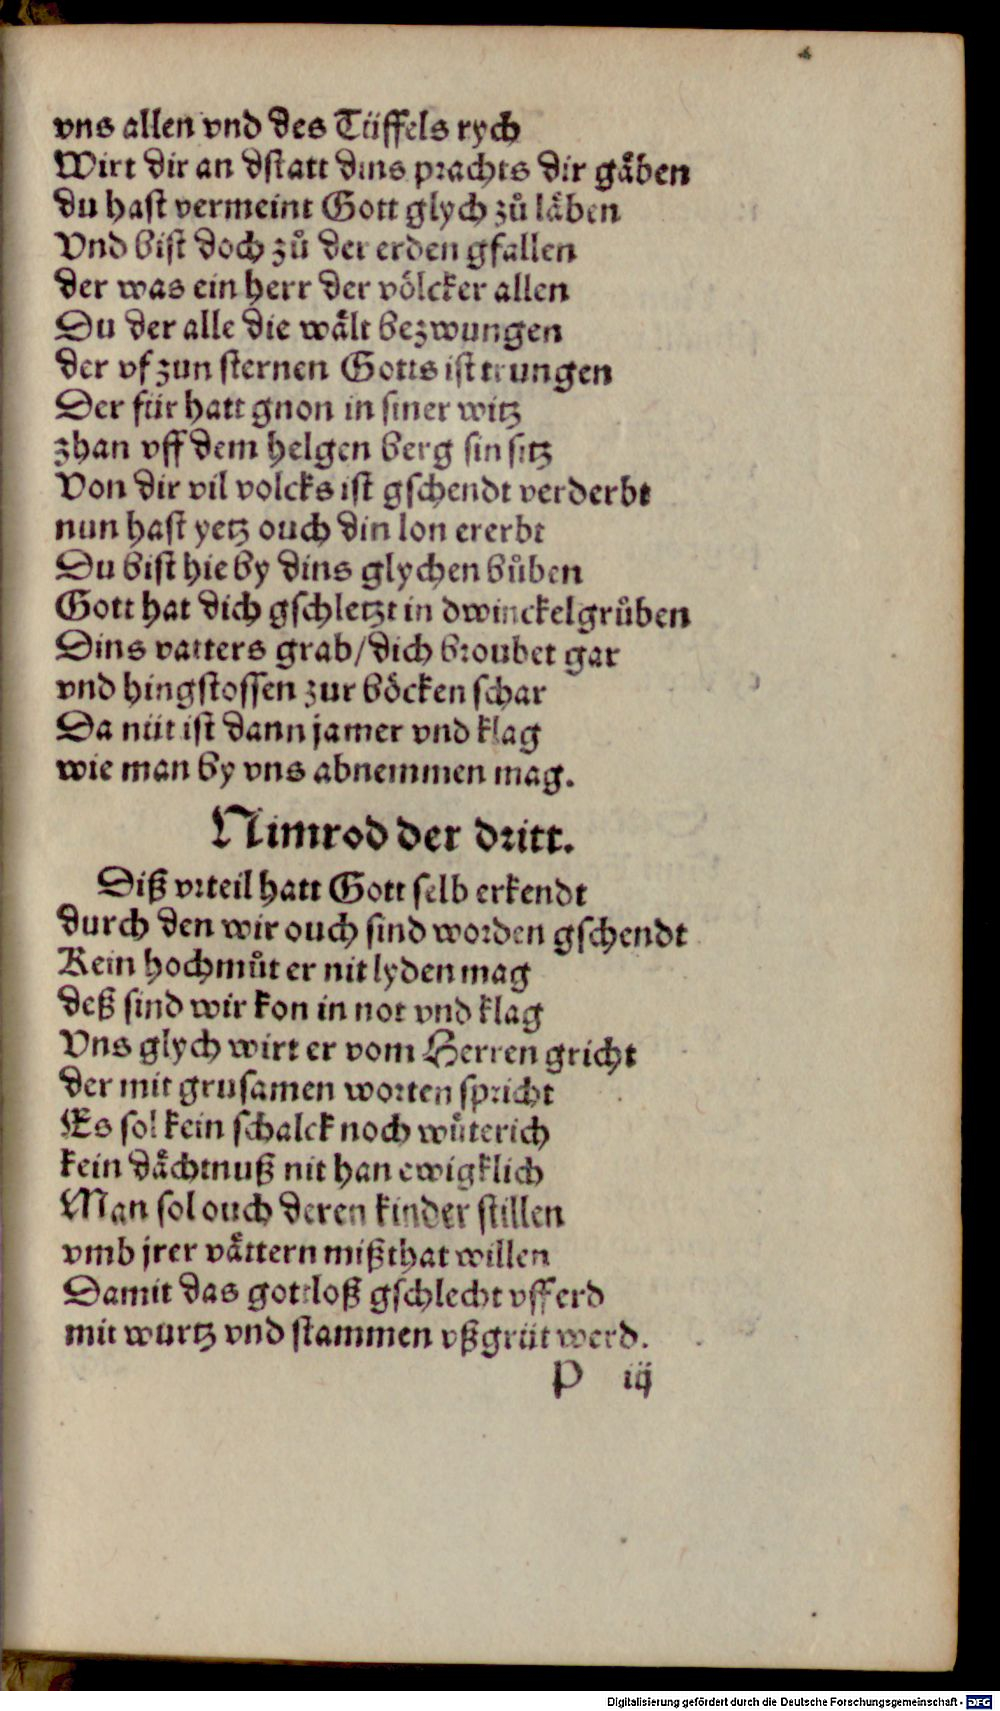 vns allen vnd des Tüffels rych
Wirt dir an dstatt dins prachts dir gaͤben
du hast vermeint Gott glych zuͦ laͤben
Vnd bist doch zuͦ der erden gfallen
der was ein herr der voͤlcker allen
Du der alle die waͤlt bezwungen
der vf zun sternen Gotts ist trungen
Der für hatt gnon in siner witz
zhan vff dem helgen berg sin sitz
Von dir vil volcks ist gschendt verderbt
nun hast yetz ouch din lon ererbt
Du bist hie by dins glychen buͦben
Gott hat dich gschletzt in dwinckelgruͦben
Dins vatters grab/dich broubet gar
vnd hingstossen zur boͤcken schar
Da nüt ist dann jamer vnd klag
wie man by vns abnemmen mag.
Nimrod der dritt.
Diß vrteil hatt Gott selb erkendt
durch den wir ouch sind worden gschendt
Kein hochmuͦt er nit lyden mag
deß sind wir kon in not vnd klag
Vns glych wirt er vom Herren gricht
der mit grusamen worten spricht
Es sol kein schalck noch wuͦterich
kein daͤchtnuß nit han ewigklich
Man sol ouch deren kinder stillen
vmb jrer vaͤttern mißthat willen
Damit das gottloß gschlecht vff erd
mit wurtz vnd stammen vßgrüt werd.
P iij
Digitalisierung gefördert durch die Deutsche Forschungsgemeinschaft - DFG